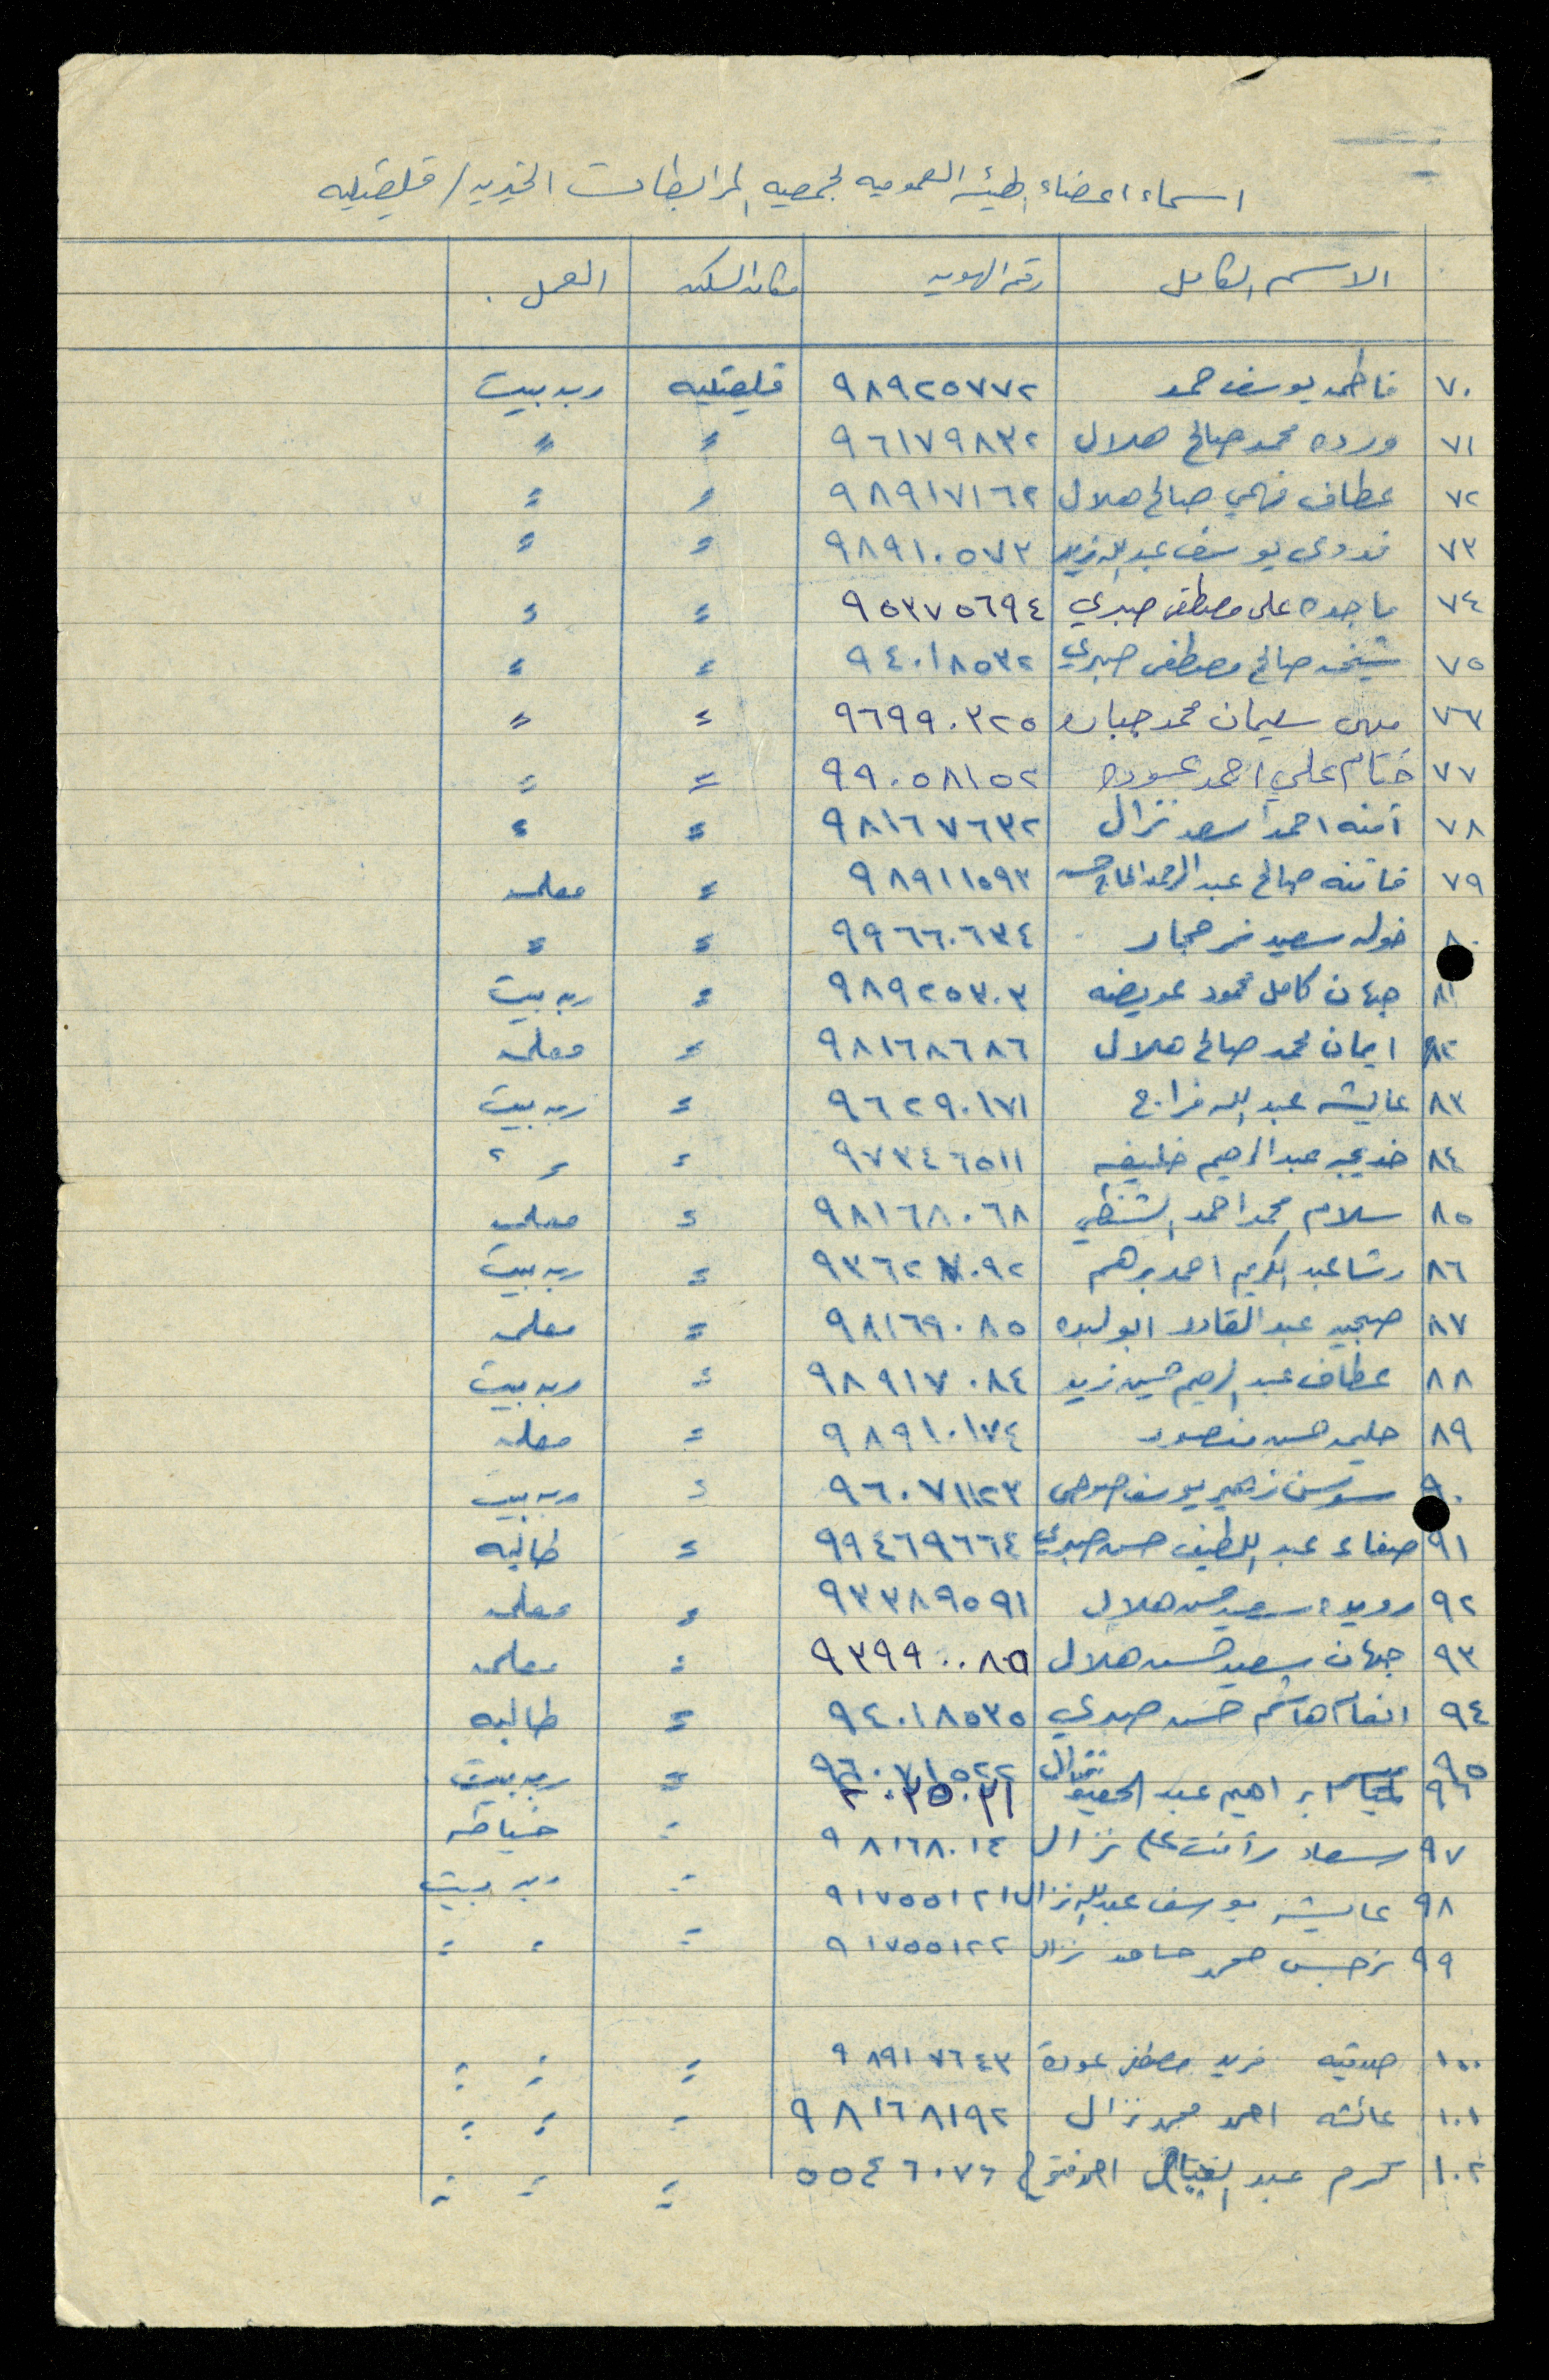 اسماء اعضاء الهيئه العموميه لجمعيه المرابطات الخيريه / قلقيليه
الاسم الكامل رقم الهويه مكان السكن العمل
٧٠ فاطمه يوسف حمد ٩٨٩٢٥٧٧٢ قلقيليه ربه بيت
٧١ ورده محمد صالح هلال ٩٦١٧٩٨٣٢ = =
٧٢ عطاف فهمي صالح هلال ٩٨٩١٧١٦٢ = =
٧٣ فدوى يوسف عبد الله زيد ٩٨٩١٠٥٧٣ = =
٧٤ ماجده علي مصطفى صبري ٩٥٣٧٥٦٩٤ = =
٧٥ شيخه صالح مصطفى صبري ٩٤٠١٨٥٣٢ = =
٧٦ مهى سليمان محمد جباره ٩٦٩٩٠٣٢٥ = =
٧٧ ختام علي احمد عوده ٩٩٠٥٨١٥٢ = =
٧٨ آمنه احمد اسعد نزال ٩٨١٦٧٦٣٢ = =
٧٩ فاتنه صالح عبد الرحمن الحاج حسن ٩٨٩١١٥٩٣ = معلمه
٨٠ خوله سعيد حجار ٩٩٦٦٠٦٣٤ = =
٨١ جهان كامل محمود عويضه ٩٨٩٢٥٣٠٣ = ربه بيت
٨٢ ايمان محمد صالح هلال ٩٨١٦٨٦٨٦ = معلمه
٨٣ عايشه عبد الله فراج ٩٦٢٩٠١٧١ = ربه بيت
٨٤ خديجه عبد الرحيم خليفه ٩٧٣٤٦٥١١ = = =
٨٥ سلام محمد احمد الشنطي ٩٨١٦٨٠٦٨ = معلمه
٨٦ رشا عبد الكريم احمد برهم ٩٣٦٢٧٠٩٢ = ربه بيت
٨٧ صبحيه عبد القادر ابو لبده ٩٨١٦٩٠٨٥ = معلمه
٨٨ عطاف عبد الرحيم حسين زيد ٩٨٩١٧٠٨٤ = ربه بيت
٨٩ حليمه حسن منصور ٩٨٩١٠١٧٤ = معلمه
٩٠ سوسن زهير يوسف ٩٦٠٧١١٢٣ = ربه بيت
٩١ صفاء عبد اللطيف حسن صبري ٩٩٤٦٩٦٦٤ = طالبه
٩٢ رويده سعيد حسن هلال ٩٣٣٨٩٥٩١ = معلمه
٩٣ جهان سعيد حسن هلال ٩٣٩٩٠٠٨٥ = معلمه
٩٤ انعام هاشم حسن صبري ٩٤٠١٨٥٣٥ = طالبه
٩٥ نزال ٩٦٠٧١٥٢٢ = ربه بيت
٩٦ ابراهيم عبد الحفيظ ٢٠٣٥٠٣١
٩٧ سعاد رأفت علي نزال ٩٨١٦٨٠١٤ = خياطه
٩٨ عايشه يوسف عبد الله نزال ٩١٧٥٥١٢١ = ربه بيت
٩٩ نرجس محمد حامد نزال ٩١٧٥٥١٢٢ = = =
١٠٠ صدقيه فريد مصطفى عودة ٩٨٩١٧٦٤٣ = = =
١٠١ عائشه احمد محمد نزال ٩٨١٦٨١٩٢ = = =
١٠٢ كرم عبد الفتاح احمد ٥٥٤٦٠٧٦ = = =